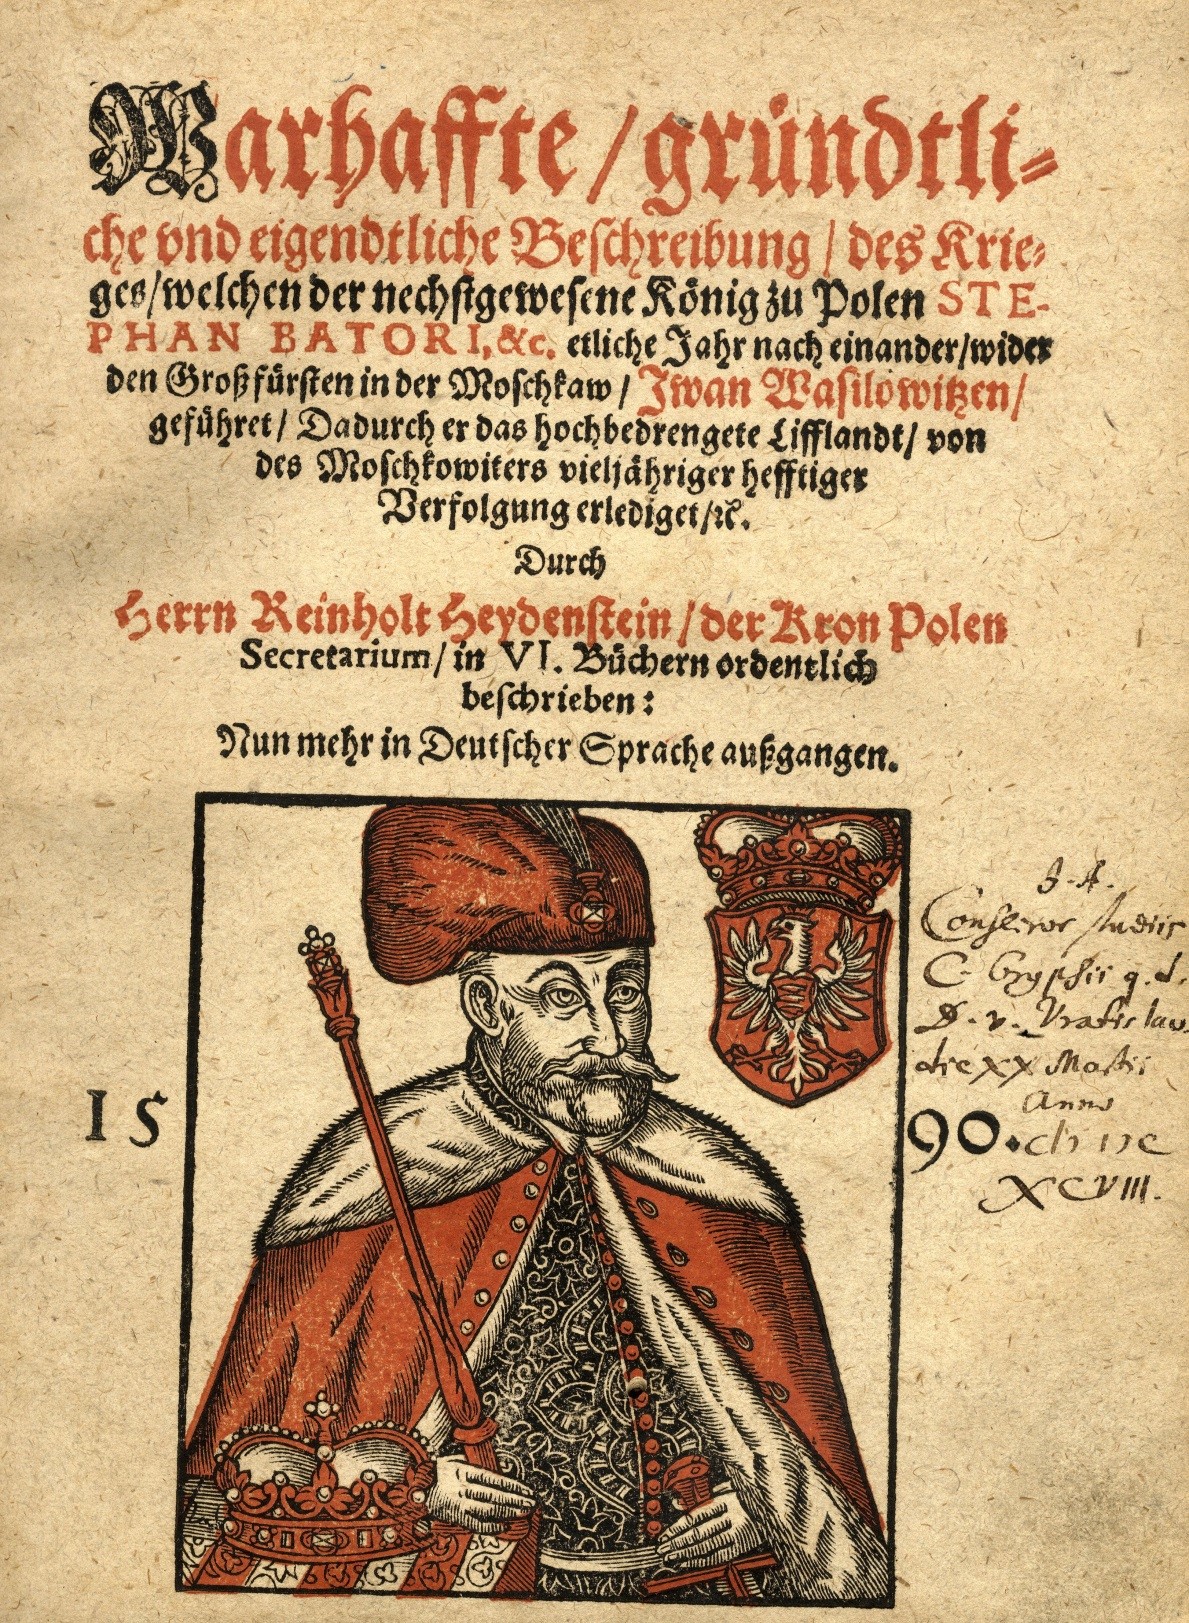 Warhaffte / gründtli⸗
che vnd eigendtliche Beschreibung / des Krie⸗
ges / welchen der nechstgewesene König zu Polen STE-
PHAN BATORI, &c. etliche Jahr nach einander / wider
den Großfürsten in der Moschkaw / Iwan Wasilowitzen /
geführet / Dadurch er das hochbedrengete Lifflandt / von
des Moschkowiters vieljähriger hefftiger
Verfolgung erlediget / ꝛc.
Durch
Herrn Reinholt Heydenstein / der Kron Polen
Secretarium / in VI. Büchern ordentlich
beschrieben:
Nun mehr in Deutscher Sprache außgangen.
J. A.
C.
q. d.
D. v. Vratislav.
die XX
Anno
15 90.
XCVIII.